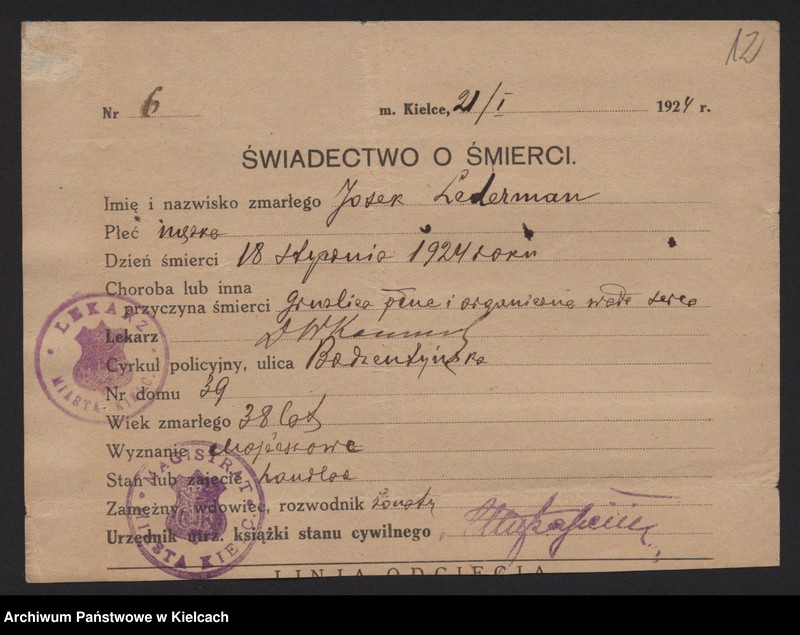 12
Nr 6 m. Kielce, 21/I 1924 r.
ŚWIADECTWO O ŚMIERCI.
Imię i nazwisko zmarłego Josek Lederman
Płeć męska
Dzień śmierci 18 stycznia 1924 roku
Choroba lub inna
przyczyna śmierci Gruźlica płuc i organiczna wada serca
Lekarz
Cyrkuł policyjny, ulica Bodzentyńska
Nr domu 39
Wiek zmarłego 38 lat
Wyznanie Mojżeszowe
Stan lub zajęcie handlarz
Zamężny, wdowiec, rozwodnik żonaty
Urzędnik utrz. książki stanu cywilnego
LINIA ODCIĘCIA
LEKARZ MIASTA KIELC
MAGISTRAT MIASTA KIELC
Archiwum Państwowe w Kielcach